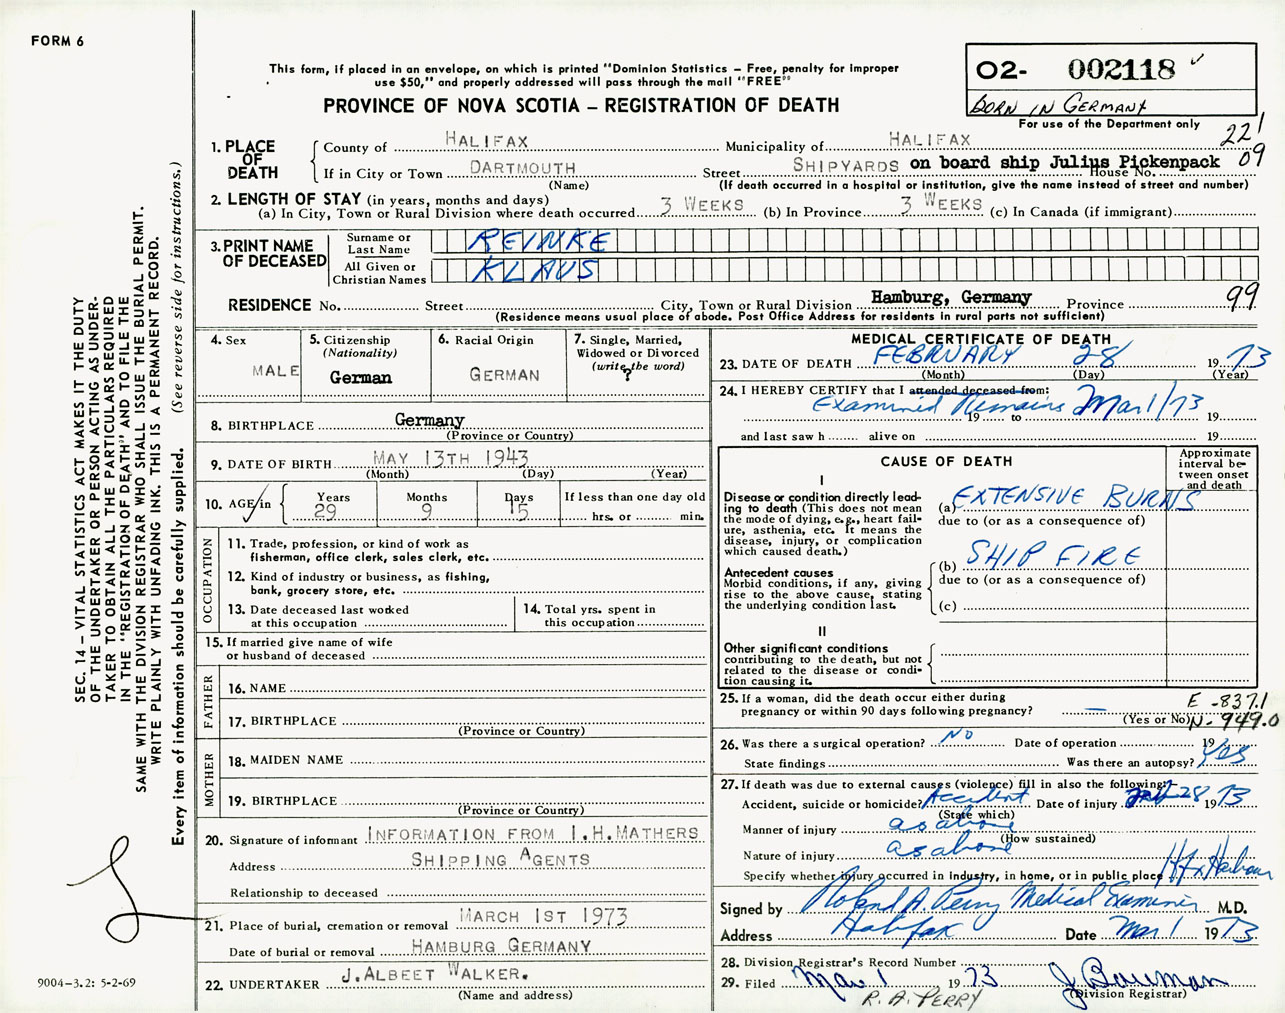 FORM 6
This form, if placed in an envelope, on which is printed "Dominion Statistics – Free, penalty for improper
use $50," and properly addressed will pass through the mail "FREE"
PROVINCE OF NOVA SCOTIA – REGISTRATION OF DEATH
02- 002118 ✓
BORN IN GERMANY
For use of the Department only
221
09
1. PLACE OF DEATH
County of HALIFAX Municipality of HALIFAX
If in City or Town DARTMOUTH Street SHIPYARDS on board ship Julius Pickenpack House No.
(Name) (If death occurred in a hospital or institution, give the name instead of street and number)
2. LENGTH OF STAY (in years, months and days)
(a) In City, Town or Rural Division where death occurred 3 WEEKS (b) In Province 3 WEEKS (c) In Canada (if immigrant)
3. PRINT NAME OF DECEASED
Surname or Last Name REINKE
All Given or Christian Names KLAUS
RESIDENCE No. Street City, Town or Rural Division Hamburg, Germany Province 99
(Residence means usual place of abode. Post Office Address for residents in rural parts not sufficient)
4. Sex
MALE
5. Citizenship
(Nationality)
German
6. Racial Origin
GERMAN
7. Single, Married,
Widowed or Divorced
(write the word)
?
8. BIRTHPLACE Germany
(Province or Country)
9. DATE OF BIRTH MAY 13TH 1943
(Month) (Day) (Year)
10. AGE in
Years Months Days If less than one day old
29 9 15 hrs. or min.
OCCUPATION
11. Trade, profession, or kind of work as
fisherman, office clerk, sales clerk, etc.
12. Kind of industry or business, as fishing,
bank, grocery store, etc.
13. Date deceased last worked
at this occupation
14. Total yrs. spent in
this occupation
15. If married give name of wife
or husband of deceased
FATHER
16. NAME
17. BIRTHPLACE
(Province or Country)
MOTHER
18. MAIDEN NAME
19. BIRTHPLACE
(Province or Country)
20. Signature of informant INFORMATION FROM I.H.MATHERS
Address SHIPPING AGENTS
Relationship to deceased
21. Place of burial, cremation or removal MARCH 1ST 1973
Date of burial or removal HAMBURG GERMANY
22. UNDERTAKER J.ALBEET WALKER.
(Name and address)
MEDICAL CERTIFICATE OF DEATH
23. DATE OF DEATH FEBRUARY 28 1973
(Month) (Day) (Year)
24. I HEREBY CERTIFY that I attended deceased from:
Examined Remains Mar 1/73
19 to 19
and last saw h alive on 19
CAUSE OF DEATH
Approximate
interval be-
tween onset
and death
I
Disease or condition directly lead-
ing to death (This does not
mean the mode of dying, e.g., heart fail-
ure, asthenia, etc. It means the
disease, injury, or complication
which caused death.)
(a) EXTENSIVE BURNS
due to (or as a consequence of)
Antecedent causes
Morbid conditions, if any, giving
rise to the above cause, stating
the underlying condition last.
(b) SHIP FIRE
due to (or as a consequence of)
(c)
II
Other significant conditions
contributing to the death, but not
related to the disease or condi-
tion causing it.
25. If a woman, did the death occur either during
pregnancy or within 90 days following pregnancy? —
(Yes or No)
E -837.1
N- 949.0
26. Was there a surgical operation? No Date of operation 19
State findings Was there an autopsy? Yes
27. If death was due to external causes (violence) fill in also the following:
Accident, suicide or homicide? Accident Date of injury 28 1973
(State which)
Manner of injury as above
(How sustained)
Nature of injury as above
Specify whether injury occurred in industry, in home, or in public place Hfx Harbour
Signed by Roland A. Perry Medical Examiner M.D.
Address Halifax Date Mar 1 1973
28. Division Registrar's Record Number
29. Filed Mar 1 1973 J Bauman
R. A. PERRY (Division Registrar)
SEC. 14 – VITAL STATISTICS ACT MAKES IT THE DUTY
OF THE UNDERTAKER OR PERSON ACTING AS UNDER-
TAKER TO OBTAIN ALL THE PARTICULARS REQUIRED
IN THE "REGISTRATION OF DEATH" AND TO FILE THE
SAME WITH THE DIVISION REGISTRAR WHO SHALL ISSUE THE BURIAL PERMIT.
WRITE PLAINLY WITH UNFADING INK. THIS IS A PERMANENT RECORD.
Every item of information should be carefully supplied. (See reverse side for instructions.)
9004-3.2: 5-2-69